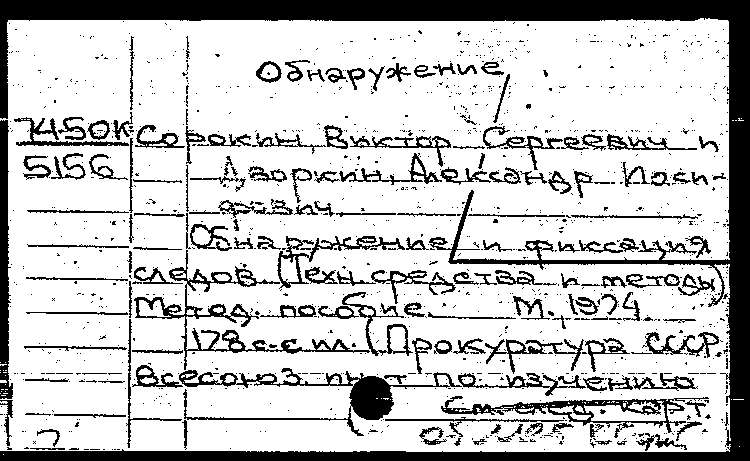 Обнаружение
74-50К Сорокин, Виктор Сергеевич и
5156 Дворкин, Александр Иоси-
фович.
Обнаружение и фиксация
следов. (Техн. средства и методы)
Метод. пособие. М., 1974.
178 с. с ил. (Прокуратура СССР.
Всесоюз. ин-т по изучению
См. след. карт.